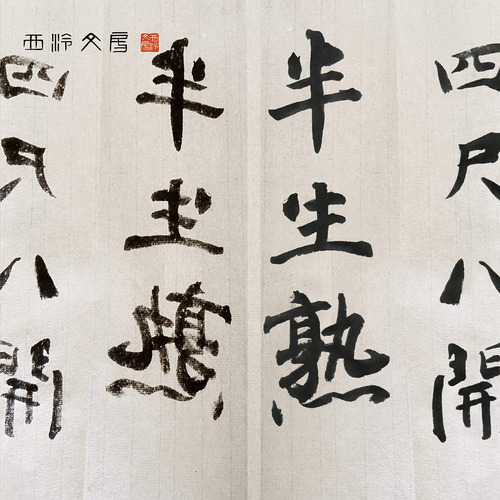 西泠文房
四尺八開
半生熟
半生熟
四尺八開